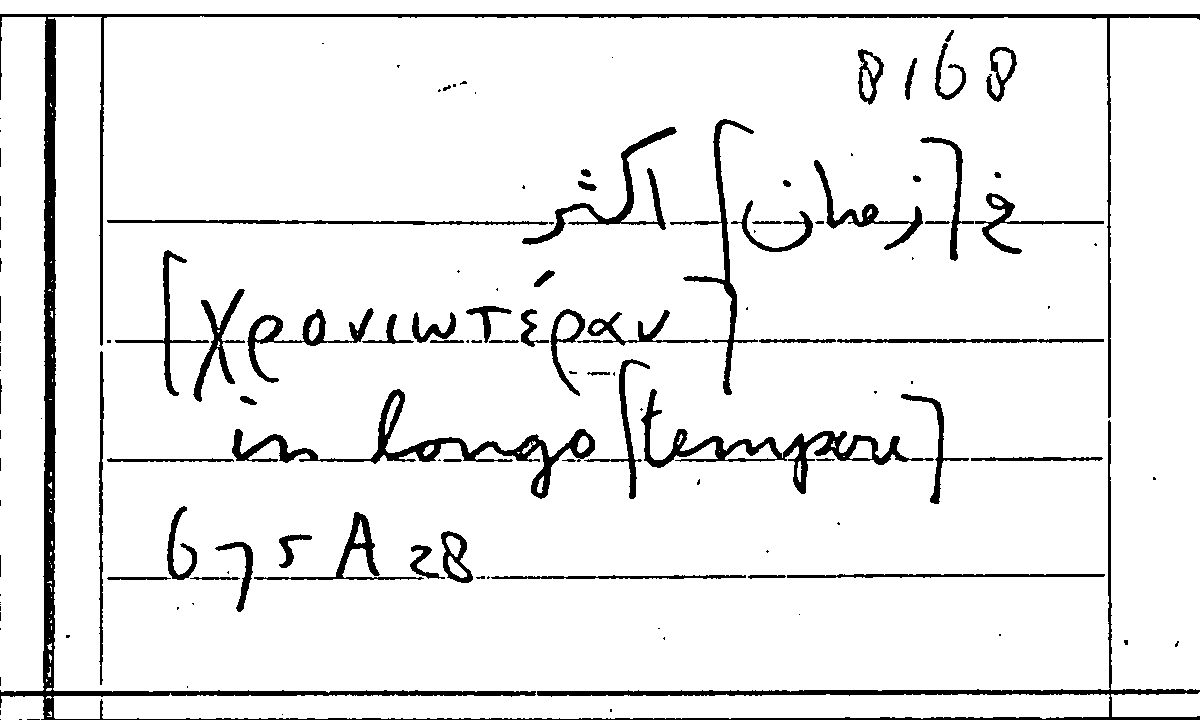 8168
في [زمان] اكثر
[χρονιωτέραν]
in longo [tempore]
675 A 28